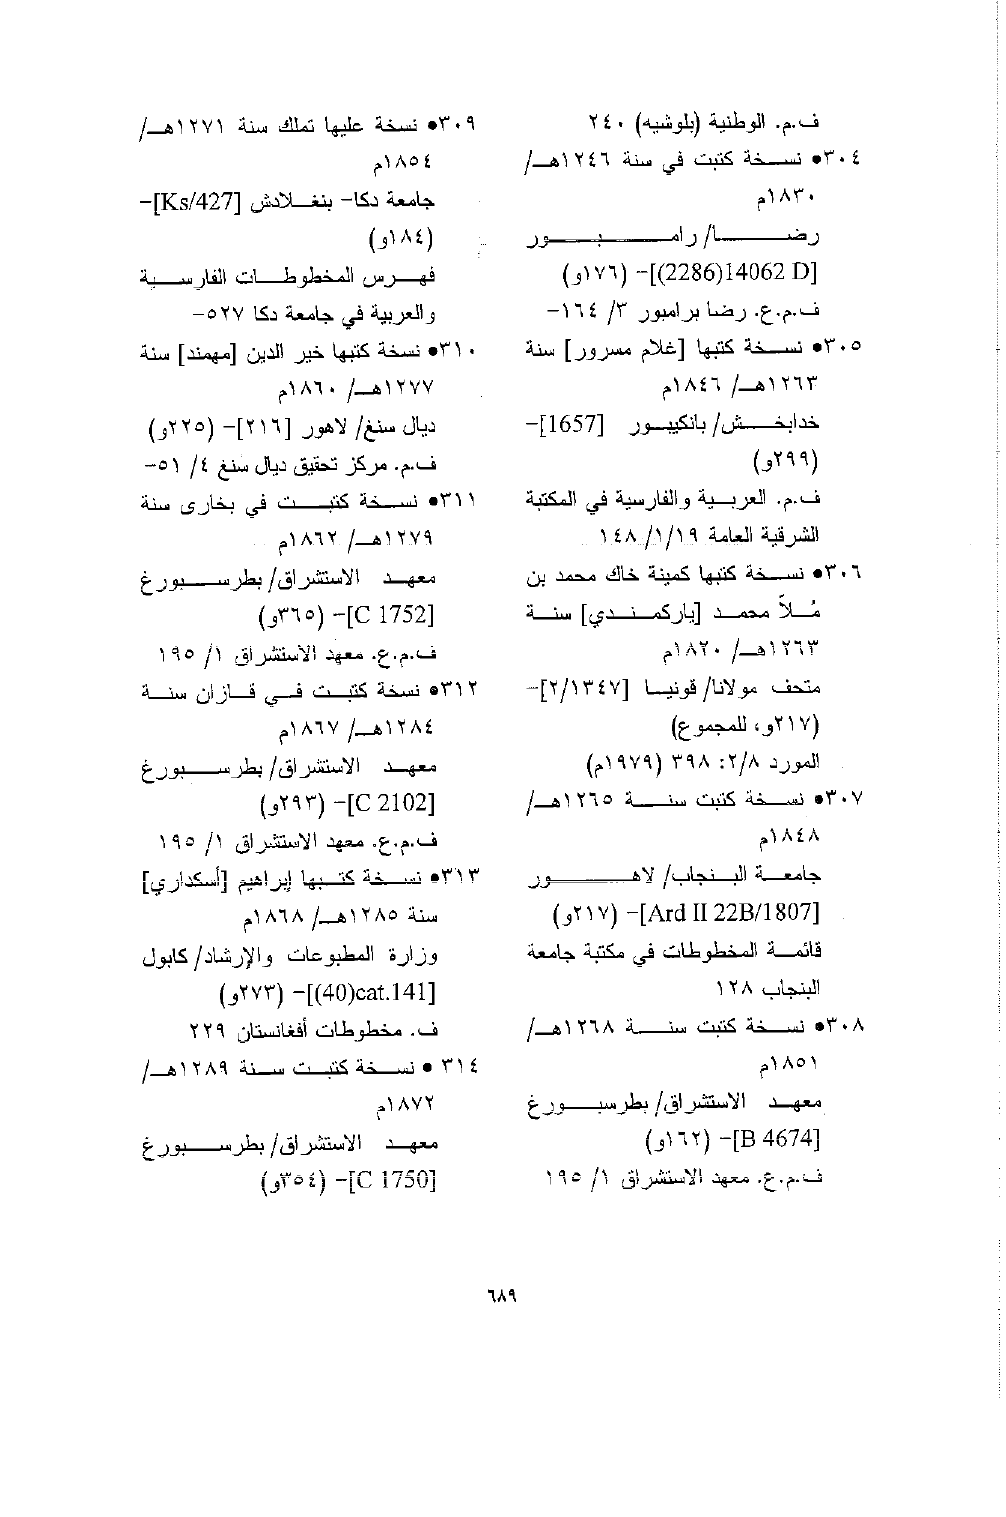 ف.م. الوطنية (بلوشيه) ٢٤٠
٣٠٤• نسخة كتبت في سنة ١٢٤٦هـ/
١٨٣٠م
رضا/ رامبور
[D 14062(2286)]- (١٧٦و)
ف.م.ع. رضا برامبور ٣/ ١٦٤-
٣٠٥• نسخة كتبها [غلام مسرور] سنة
١٢٦٣هـ/ ١٨٤٦م
خدابخش/ بانكيبور [1657]-
(٢٩٩و)
ف.م. العربية والفارسية في المكتبة
الشرقية العامة ١٩/ ١/ ١٤٨
٣٠٦• نسخة كتبها كمينة خاك محمد بن
مُلاّ محمد [ياركمندي] سنة
١٢٦٣هـ/ ١٨٢٠م
متحف مولانا/ قونيا [٢/١٣٤٧]-
(٢١٧و، للمجموع)
المورد ٢/٨: ٣٩٨ (١٩٧٩م)
٣٠٧• نسخة كتبت سنة ١٢٦٥هـ/
١٨٤٨م
جامعة البنجاب/ لاهور
[Ard II 22B/1807]- (٢١٧و)
قائمة المخطوطات في مكتبة جامعة
البنجاب ١٢٨
٣٠٨• نسخة كتبت سنة ١٢٦٨هـ/
١٨٥١م
معهد الاستشراق/ بطرسبورغ
[B 4674]- (١٦٢و)
ف.م.ع. معهد الاستشراق ١/ ١٩٥
٣٠٩• نسخة عليها تملك سنة ١٢٧١هـ/
١٨٥٤م
جامعة دكا- بنغلادش [Ks/427]-
(١٨٤و)
فهرس المخطوطات الفارسية
والعربية في جامعة دكا ٥٢٧-
٣١٠• نسخة كتبها خير الدين [مهمند] سنة
١٢٧٧هـ/ ١٨٦٠م
ديال سنغ/ لاهور [٢١٦]- (٢٢٥و)
ف.م. مركز تحقيق ديال سنغ ٤/ ٥١-
٣١١• نسخة كتبت في بخارى سنة
١٢٧٩هـ/ ١٨٦٢م
معهد الاستشراق/ بطرسبورغ
[C 1752]- (٣٦٥و)
ف.م.ع. معهد الاستشراق ١/ ١٩٥
٣١٢• نسخة كتبت في قازان سنة
١٢٨٤هـ/ ١٨٦٧م
معهد الاستشراق/ بطرسبورغ
[C 2102]- (٢٩٣و)
ف.م.ع. معهد الاستشراق ١/ ١٩٥
٣١٣• نسخة كتبها إبراهيم [أسكداري]
سنة ١٢٨٥هـ/ ١٨٦٨م
وزارة المطبوعات والإرشاد/ كابول
[cat.141(40)]- (٢٧٣و)
ف. مخطوطات أفغانستان ٢٢٩
٣١٤ • نسخة كتبت سنة ١٢٨٩هـ/
١٨٧٢م
معهد الاستشراق/ بطرسبورغ
[C 1750]- (٣٥٤و)
٦٨٩